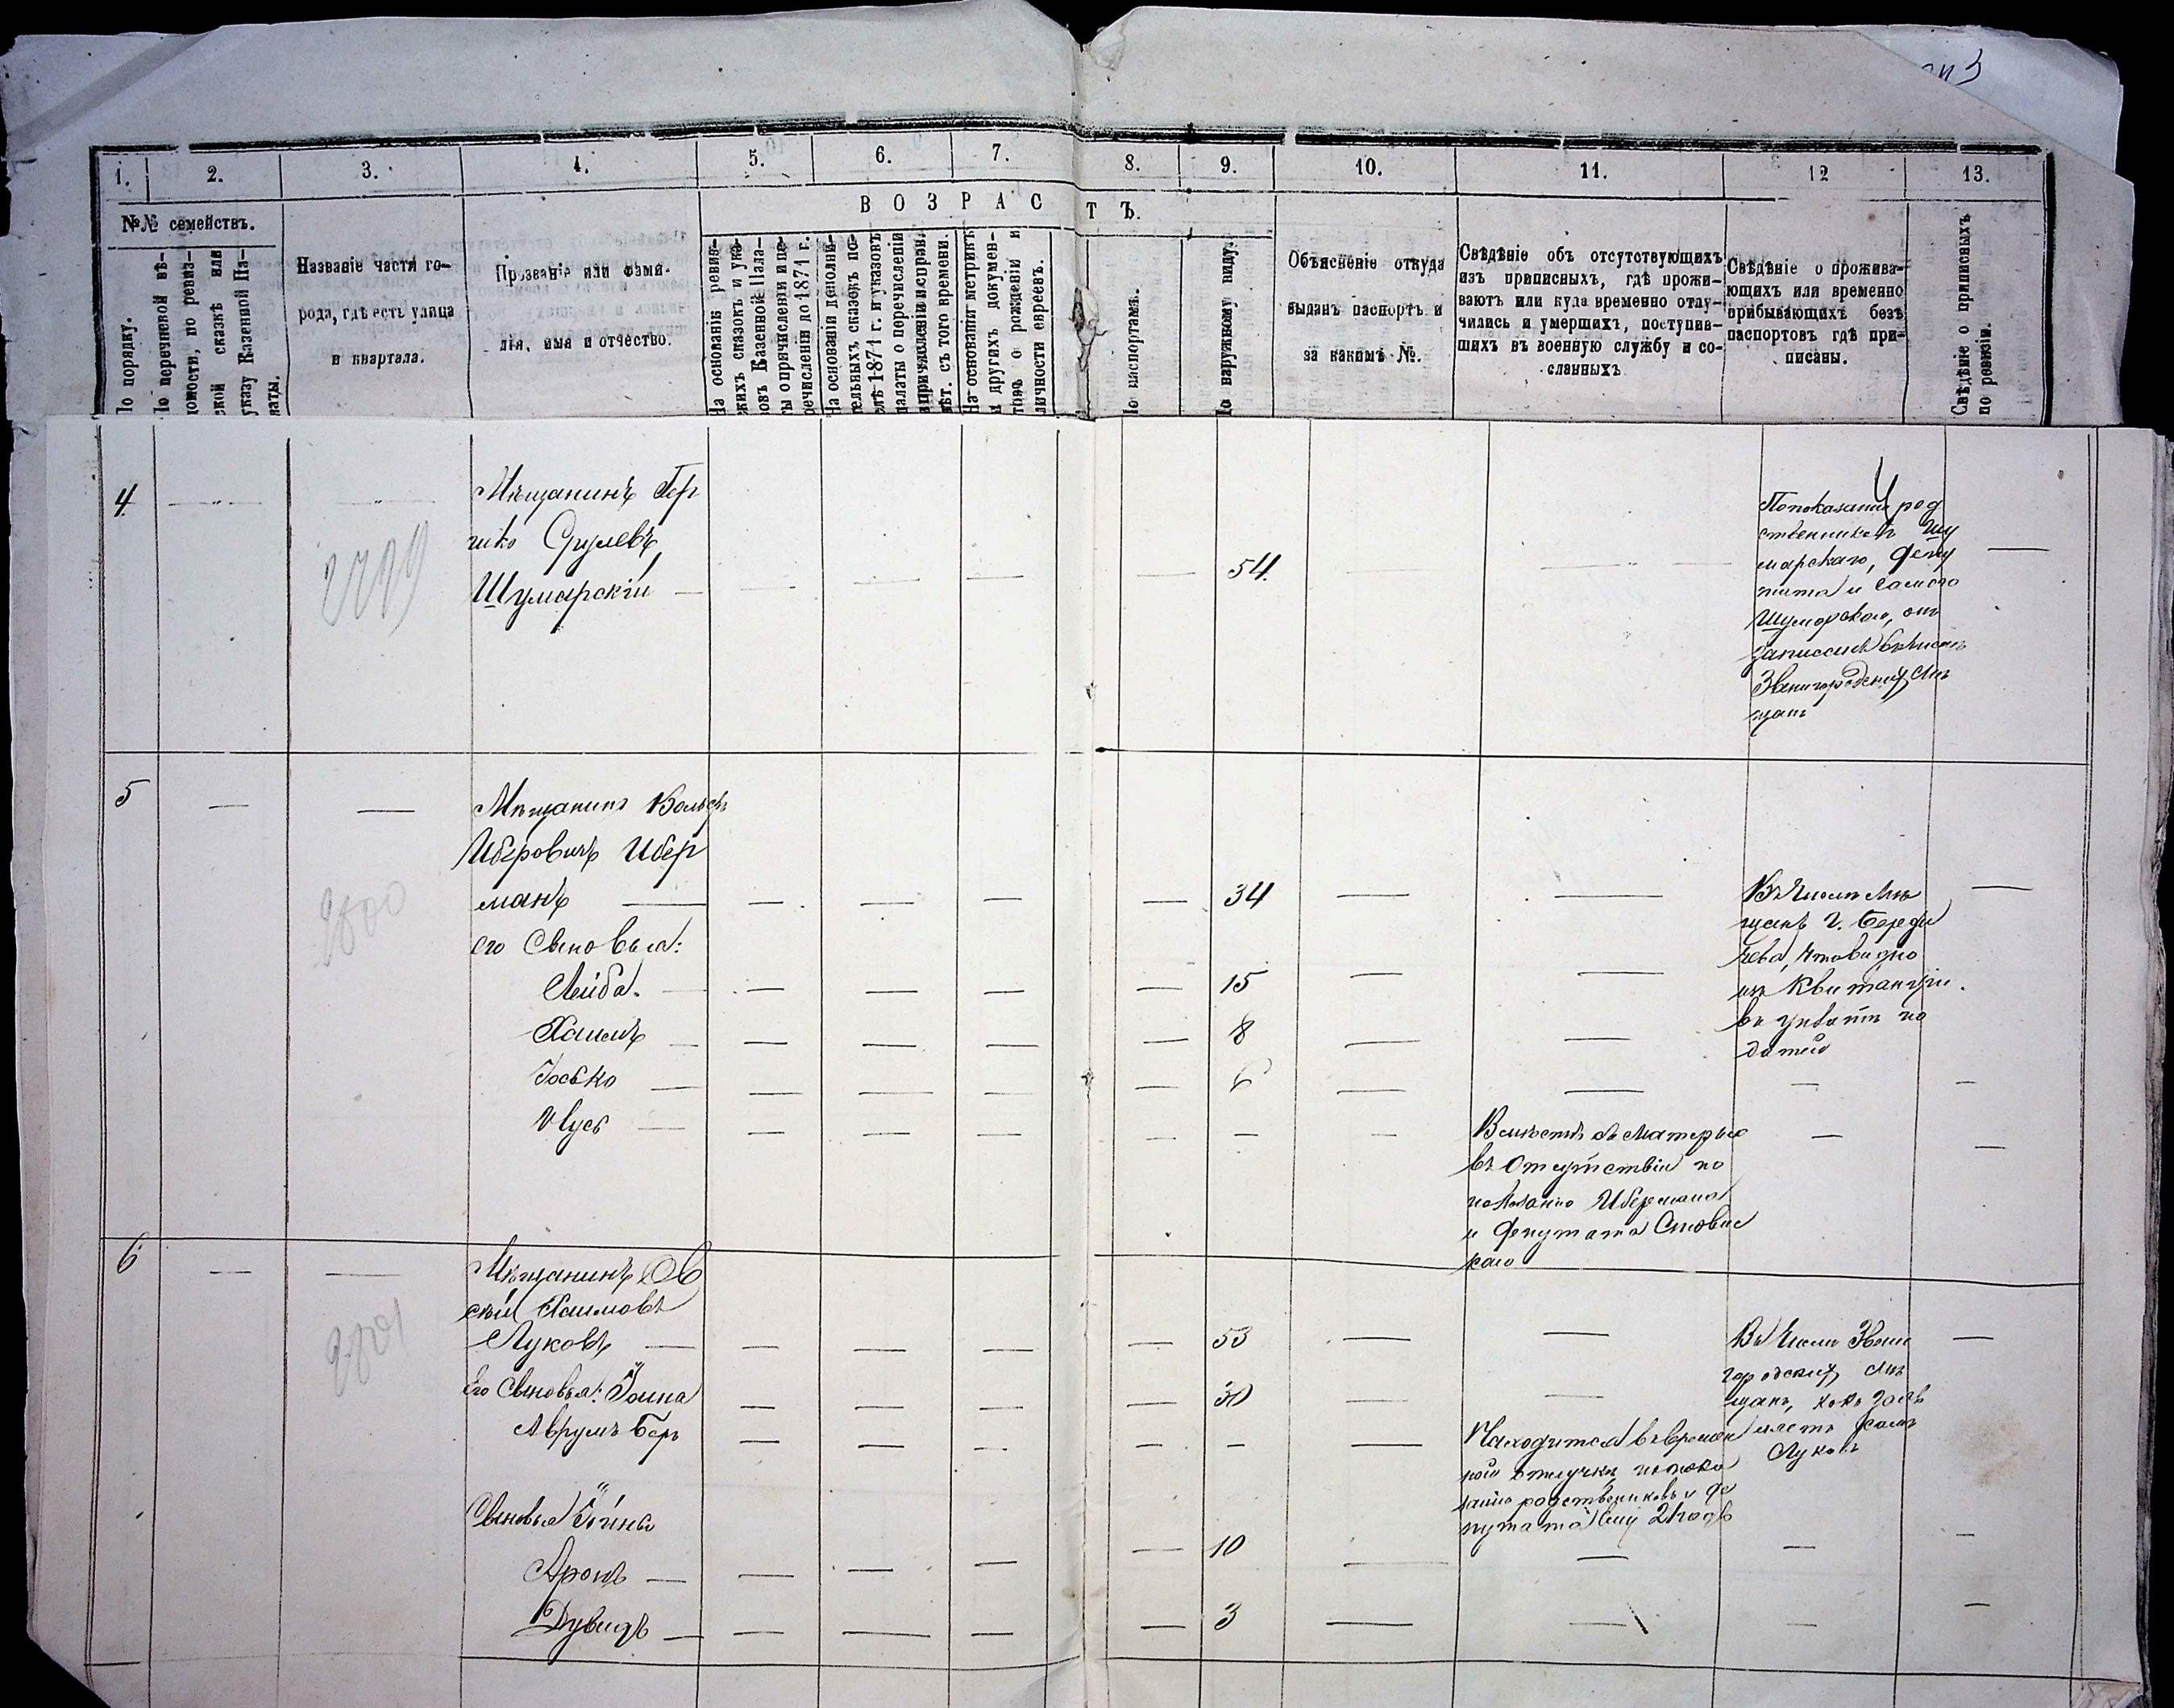 1.
2.
3.
4.
5.
6.
7.
8.
9.
10.
11.
12
13.
№№ семействъ.
ВОЗРАСТЪ.
По порядку.
По перечневой вѣ-
домости, по ревиз-
ской сказкѣ или
указу Казенной Па-
латы.
Названіе части го-
рода, гдѣ есть улица
и квартала.
Прозваніе или фами-
лія, имя и отчество.
На основаніи ревиз-
скихъ сказокъ и ука-
зовъ Казенной Пала-
ты о причисленіи и пе-
речисленіи до 1871 г.
На основаніи дополни-
тельныхъ сказокъ по-
слѣ 1871 г. и указовъ
палаты о перечисленіи
и причисленіи и исправ.
лѣт. съ того времени.
На основаніи метрикъ
и другихъ докумен-
товъ о рожденіи и
личности евреевъ.
По паспортамъ.
По наружному виду.
Объясненіе откуда
выданъ паспортъ и
за какимъ №.
Свѣдѣніе объ отсутствующихъ
изъ приписныхъ, гдѣ прожи-
ваютъ или куда временно отлу-
чились и умершихъ, поступив-
шихъ въ военную службу и со-
сланныхъ
Свѣдѣніе о прожива-
ющихъ или временно
прибывающихъ безъ
паспортовъ гдѣ при-
писаны.
Свѣдѣніе о приписныхъ
по ревизіи.
4.
2799
Мѣщанинъ Гер
шко Срулевъ
Шумарскій
54.
По показанію род
ственниковъ Шу
марскаго, депу
тата и самого
Шумарскаго, онъ
записанъ въ числѣ
Звенигородскихъ мѣ
щанъ
5
2800
Мѣщанинъ Вольфъ
Иберовичъ Ибер
манъ
34
его Сыновья:
Лейба.
15
Хаимъ
8
Іосько
6
Иусь
Вмѣстѣ съ матерью
въ отсутствіи по
показанію Ибермана
и депутата
каго
Въ числѣ мѣ
щанъ г. Берди
чева, что видно
изъ квитанціи
въ уплатѣ по
датей
6
2801
Мѣщанинъ Ов
сій Хаимовъ
Луковъ
53
Его Сыновья: Іоина
30
Аврумъ Беръ
Находится въ времен
ной отлучкѣ по пока
занію родственниковъ и де
путата ему 21 годъ
Въ числѣ Звени
городскихъ мѣ
щанъ, какъ заяв
ляетъ самъ
Луковъ
Сыновья Іоины
Аронъ
10
Дувидъ
3